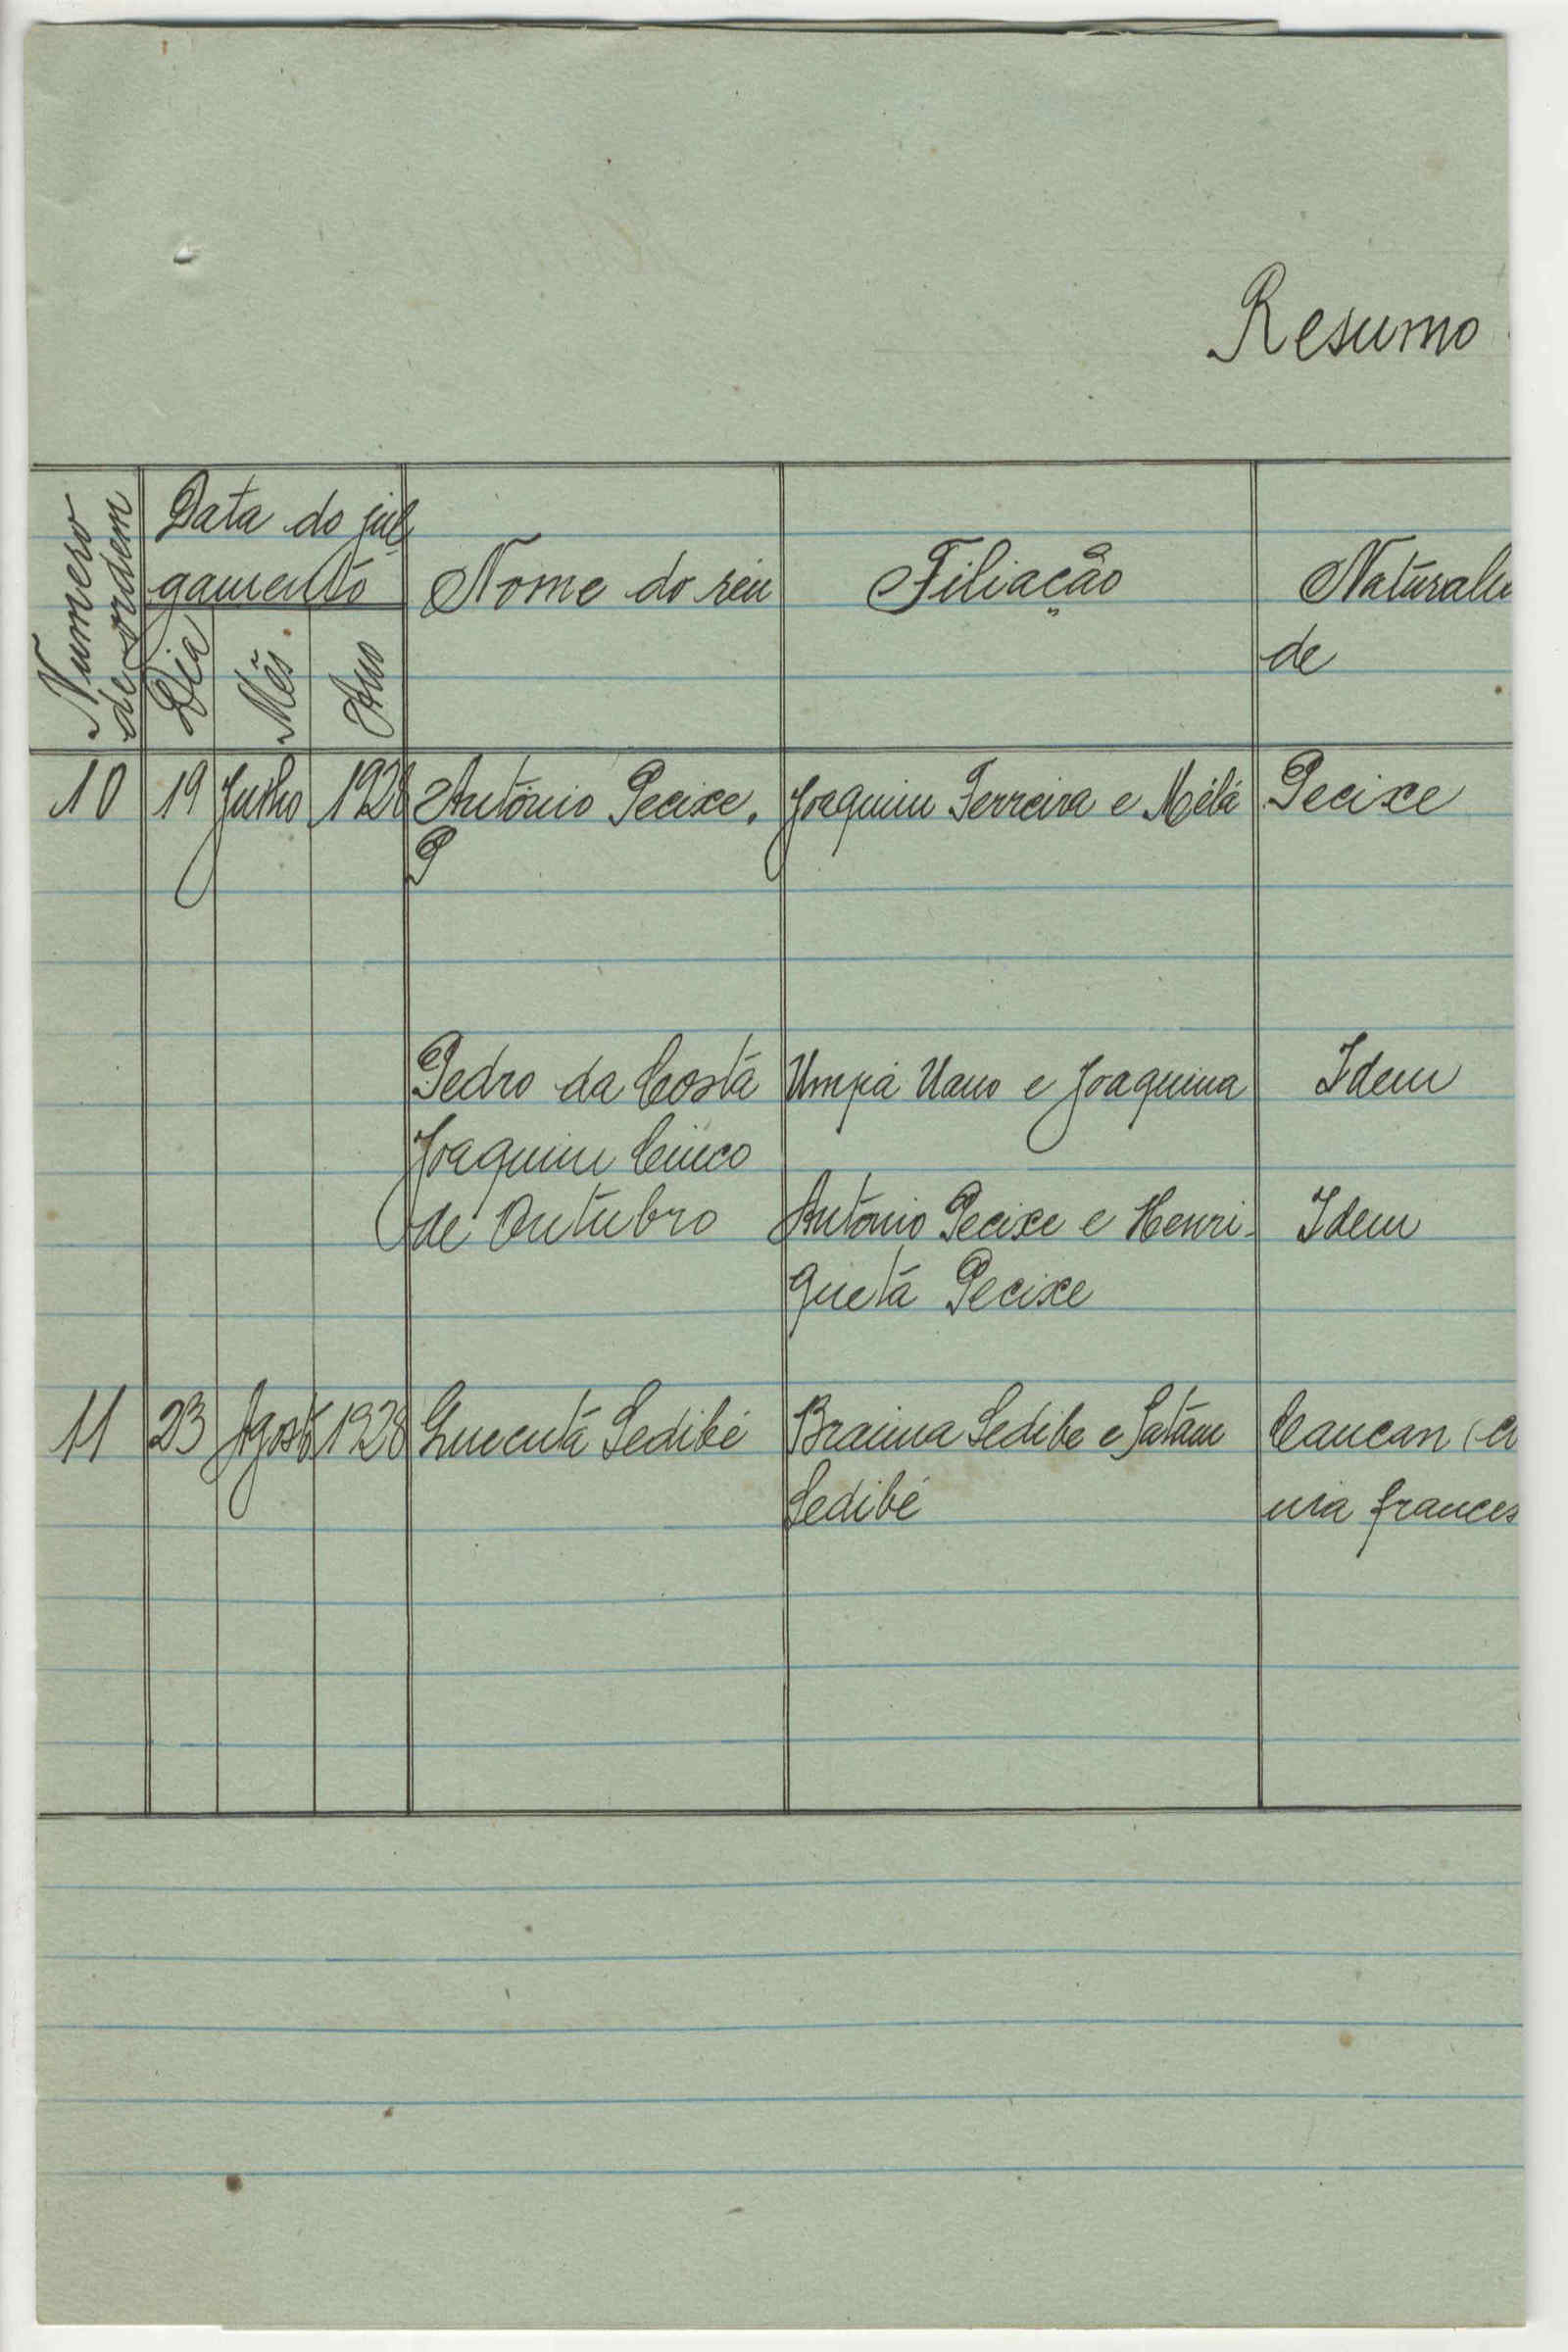 Resumo
Numero
de ordem
Data do jul
gamento
Dia
Mês
Ano
Nome do réu
Filiação
Naturali
de
10 19 Julho 1928 António Pecixe. Joaquim Ferreira e Mélá Pecixe
P
Pedro da Costa Umpá Uano e Joaquina Idem
Joaquim Cinco
de Outubro António Pecixe e Henri- Idem
queta Pecixe
11 23 Agosto 1928 Sedibé Braima Sedibe e Satam Cancan
Sedibé nia frances